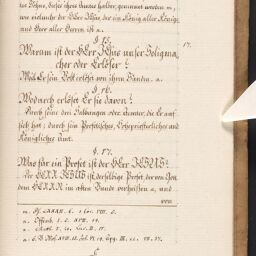 ter Söhne, dieses ihres Amtes halber, genennet werden m,
wie vielmehr der HErr JEsus, der ein König aller Könige
und Herr aller Herren ist n.
§. 15.
17.
Warum ist der HErr JEsus unser Seligma,
cher oder Erlöser?
Weil Er sein Volk erlöset von ihren Sünden. a.
§. 16.
Wodurch erlöset Er sie davon?
Durch seine drei Salbungen oder Ämter, die Er auf
sich hat; durch sein Profetisches, Hohepriesterliches und
Königliches Amt.
§. 17.
Was für ein Profet ist der HErr JESUS?
Der HERR JESUS ist derselbige Profet, der von Gott
dem HERRN im alten Bunde verheißen a, und
von
m. Ps. LXXXII. 6.
n. Offenb. I. 5. XVII. 14.
a. Matth. I. 21. Luc. II. 11.